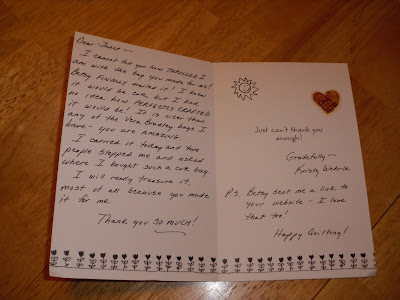 Dear Janet —
I cannot tell you how THRILLED I
am with the bag you made for me!
Betsy FINALLY mailed it! I knew
it would be cute but I had
no idea how PERFECTLY CRAFTED
it would be! It is nicer than
any of the Vera Bradley bags I
have - you are AMAZING.
I carried it today and two
people stopped me and asked
where I bought such a cute bag.
I will really treasure it,
most of all because you made
it for me.
Thank you SO MUCH!
Just can't thank you
enough!
Gratefully —
Kirsty
P.S. Betsy sent me a link to
your website - I love
that too!
Happy Quilting!